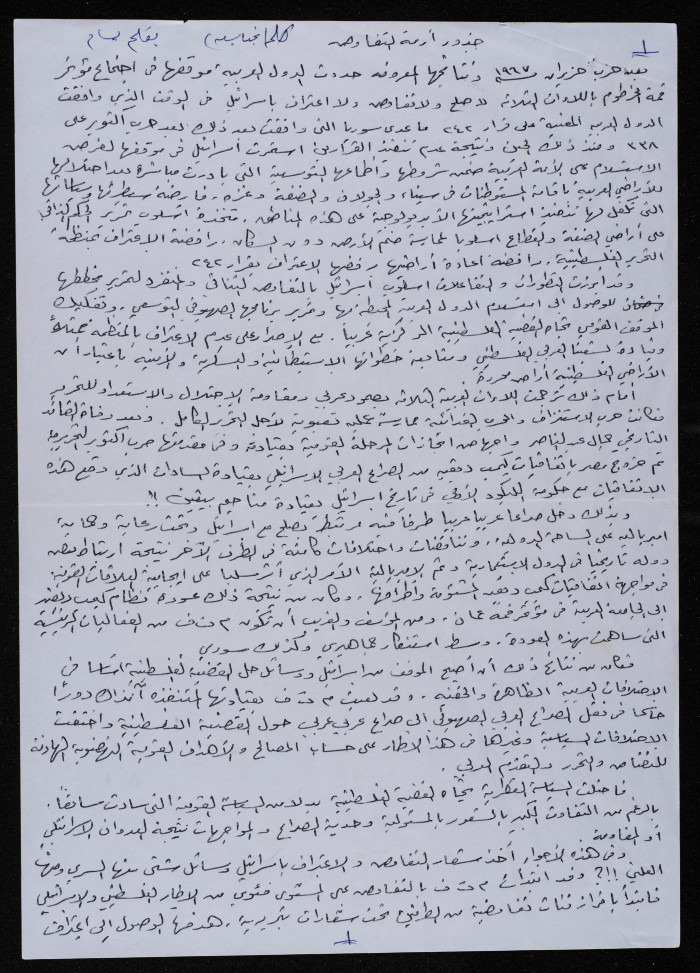 1 جذور أزمة التفاوض بقلم بسام
بعد حرب حزيران ١٩٦٧ ونتائجها المعروفة حددت الدول العربية موقفها في اجتماع مؤتمر
قمة الخرطوم باللاءات الثلاثة لا صلح ولا تفاوض ولا اعتراف بإسرائيل في الوقت الذي وافقت
الدول العربية المعنية على قرار ٢٤٢ ما عدى سوريا التي وافقت بعد ذلك بعد حرب اكتوبر على
٣٣٨ ومنذ ذلك الحين ونتيجة عدم تنفيذ القرارين استمرت اسرائيل في موقفها لفرض
الاستسلام على الأمة العربية ضمن شروطها وأطماعها التوسعية التي بادرت مباشرة بعد احتلالها
للأراضي العربية باقامة المستوطنات في سيناء والجولان والضفة وغزه. فارضة سيطرتها
التي تكفل لها تنفيذ استراتيجيتها الأيديولوجية على هذه المناطق. متخذة اسلوب تمرير الحكم الذاتي
على أراضي الضفة والقطاع اسلوبا لممارسة ضم الأرض دون السكان. رافضة الاعتراف بمنظمة
التحرير الفلسطينية. رافضة اعادة أراضيها رفضها الاعتراف بقرار ٢٤٢
وقد أبرزت التطورات والتفاعلات اسلوب اسرائيل بالتفاوض الثنائي والمنفرد لتمرير مخططها
للوصول الى استسلام الدول العربية المحيطة بها وتمرير برنامجها الصهيوني التوسعي. وتفكيك
الموقف القومي تجاه القضية الفلسطينية المركزية عربياً. مع الاصرار على عدم الاعتراف بالمنظمة ممثلاً
وقيادة لشعبنا العربي الفلسطيني ومتابعة خطواتها الاستيطانية والعسكرية والأمنية باعتبار أن
الأراضي الفلسطينية أراضي محررة.
أمام ذلك ترجمت اللاءات العربية الثلاثة بصمود عربي ومقاومة الاحتلال والاستعداد للتحرير
فكانت حرب الاستنزاف والحرب الفدائية ممارسة عملية تعبوية لأجل التحرير الكامل. وبعد وفاة القائد
التاريخي جمال عبد الناصر واجهاض انجازات المرحلة القومية بقيادته وفي مقدمتها حرب أكتوبر التحريرية
تم خروج مصر باتفاقيات كمب ديفيد من الصراع العربي الاسرائيلي بقيادة السادات الذي وقع هذه
الاتفاقيات مع حكومة الليكود الأولى في تاريخ اسرائيل بقيادة مناحم بيغن !!
وبذلك دخل صراعا عربيا عربيا طرفا منه مرتبط بصلح مع اسرائيل وتحت رعاية وحماية
امبريالية على الساحة الدولية. وتناقضات واختلافات كامنة في الطرف الآخر نتيجة ارتباط بعض
دوله تاريخياً في الدول الاستعمارية ودعم الامبريالية الأمر الذي أثر سلبا على ايجابية العلاقات القومية
في مواجهة اتفاقيات كمب ديفيد المشؤومة وأطرافها. وكان من نتيجة ذلك عودة نظام كمب ديفيد
الى الجامعة العربية في مؤتمر قمة عمان. ومن المؤسف والغريب أن تكون م ت ف من الفعاليات الرئيسية
التي ساهمت بهذه العودة. وسط استنكار جماهيري وكذلك سوري
فكان من نتائج ذلك أن أصبح الموقف من اسرائيل ووسائل حل القضية الفلسطينية أساسا في
الاختلافات العربية الظاهرة والخفية. وقد لعبت م ت ف بقيادتها المتنفذة آنذاك دوراً
في نقل الصراع العربي الصهيوني الى صراع عربي عربي حول القضية الفلسطينية واختفت
الاختلافات السياسية وغيرها في هذا الاطار على حساب المصالح والأهداف القومية النهضوية الهادفة
للتضامن والتحرر والتقدم العربي.
فأحلت السياسة القطرية تجاه القضية الفلسطينية بدلا من السياسة القومية التي سادت سابقاً.
بالرغم من التفاوت الكبير بالشعور بالمسؤولية وحدية الصراع والمواجهات نتيجة العدوان الاسرائيلي
أو المقاومة.
وفي هذه الأجواء أخذ شعار التفاوض والاعتراف باسرائيل وسائل شتى منها السري ومنها
العلني !!? وقد ابتدأت م ت ف بالتفاوض على المستوى فئوي من الاطار الفلسطيني والاسرائيلي
فابتدأ بافراز فئات تفاوضية من الطرفين تحت شعارات تبريرية. هدفها الوصول الى اعتراف
1